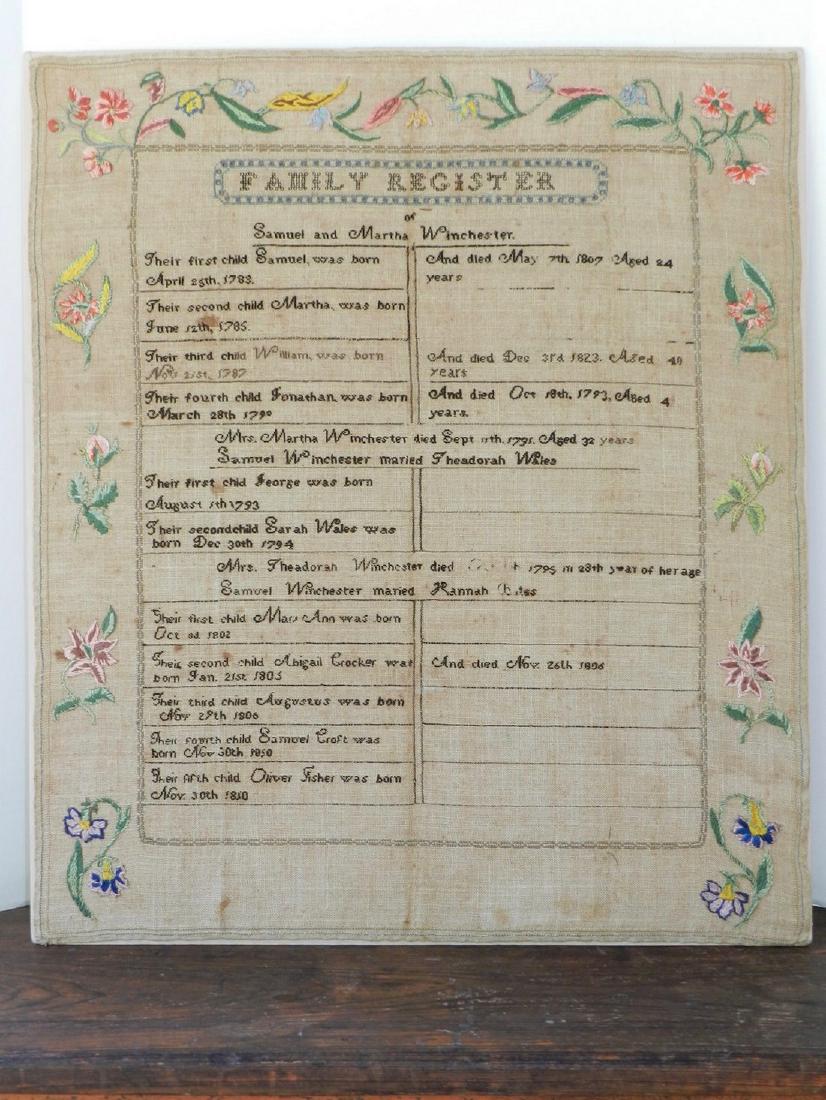 FAMILY REGISTER
of
Samuel and Martha Winchester.
Their first child Samuel, was born
April 25th, 1783.
And died May 7th 1807 Aged 24
years
Their second child Martha, was born
June 12th, 1785.
Their third child William, was born
21st, 1787
And died Dec 3rd 1823. Aged
years
Their fourth child Jonathan, was born
March 28th 1790
And died Oct 18th, 1793, Aged 4
years.
Mrs. Martha Winchester died Sept 1791. Aged 32 years
Samuel Winchester maried Theadorah Wales
Their first chid George was born
August 1793
Their secondchild Sarah Wales was
born Dec 30th 1794
Mrs. Theadorah Winchester died 1795 in 28th year of her age
Samuel Winchester maried Hannah
Their first child Mary Ann was born
Oct 1802
Their second child Abigail Crocker was
born Jan. 21st 1805
And died Nov. 26th 1806
Their third child Augustus was born
Nov 29th 1806
Their fourth child Samuel Croft was
born Nov 30th 1810
Their fifth child Oliver Fisher was born
Nov. 30th 1810